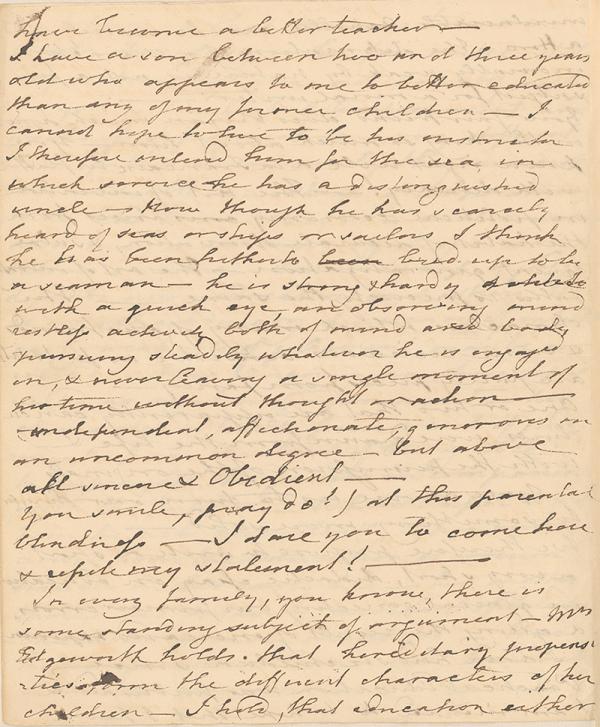 have become a better teacher —
I have a son between two and three years
old who appears to me to better educated
than any of my former children — I
cannot hope to live to be his instructor
I therefore intend him for the sea, in
which service he has a distinguished
uncle — Now though he has scarcely
heard of seas or ships or sailors I think
he has been hitherto been bred up to be
a seaman — he is strong & hardy
with a quick eye, an observing mind
restless activity both of mind and body
pursuing steadily whatever he is engaged
in, & never leaving a single moment of
his time without thought or action —
independent, affectionate, generous in
an uncommon degree — but above
all sincere & Obedient —
you smile, pray do!) at this parental
blindness — I dare you to come here
& refute my statement! —
In every family, you know, there is
some standing subject of argument — Mrs
Edgeworth holds. that hereditary propens
ties form the different characters of her
children — I hold, that education either